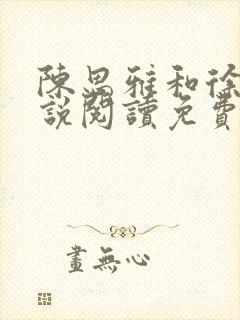 陳思雅和徐
說閱讀免費
畫無心